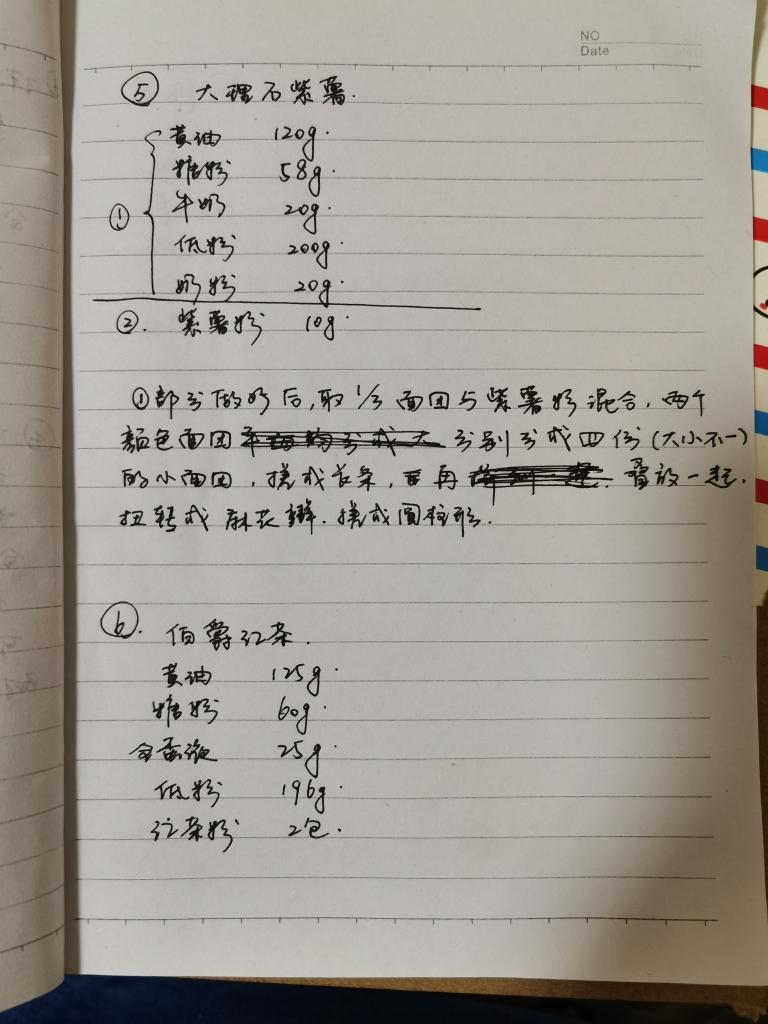 NO
Date
⑤ 大理石紫薯.
① 黄油 120g.
糖粉 58g.
牛奶 20g.
低粉 200g.
奶粉 20g.
②. 紫薯粉 10g.
①部分做好后,取1/3面团与紫薯粉混合,两个
颜色面团分别分成四份(大小不一)
的小面团,搓成长条,再叠放一起.
扭转成麻花辫.搓成圆柱形.
⑥. 伯爵红茶.
黄油 125g.
糖粉 60g.
全蛋液 25g.
低粉 196g.
红茶粉 2包.